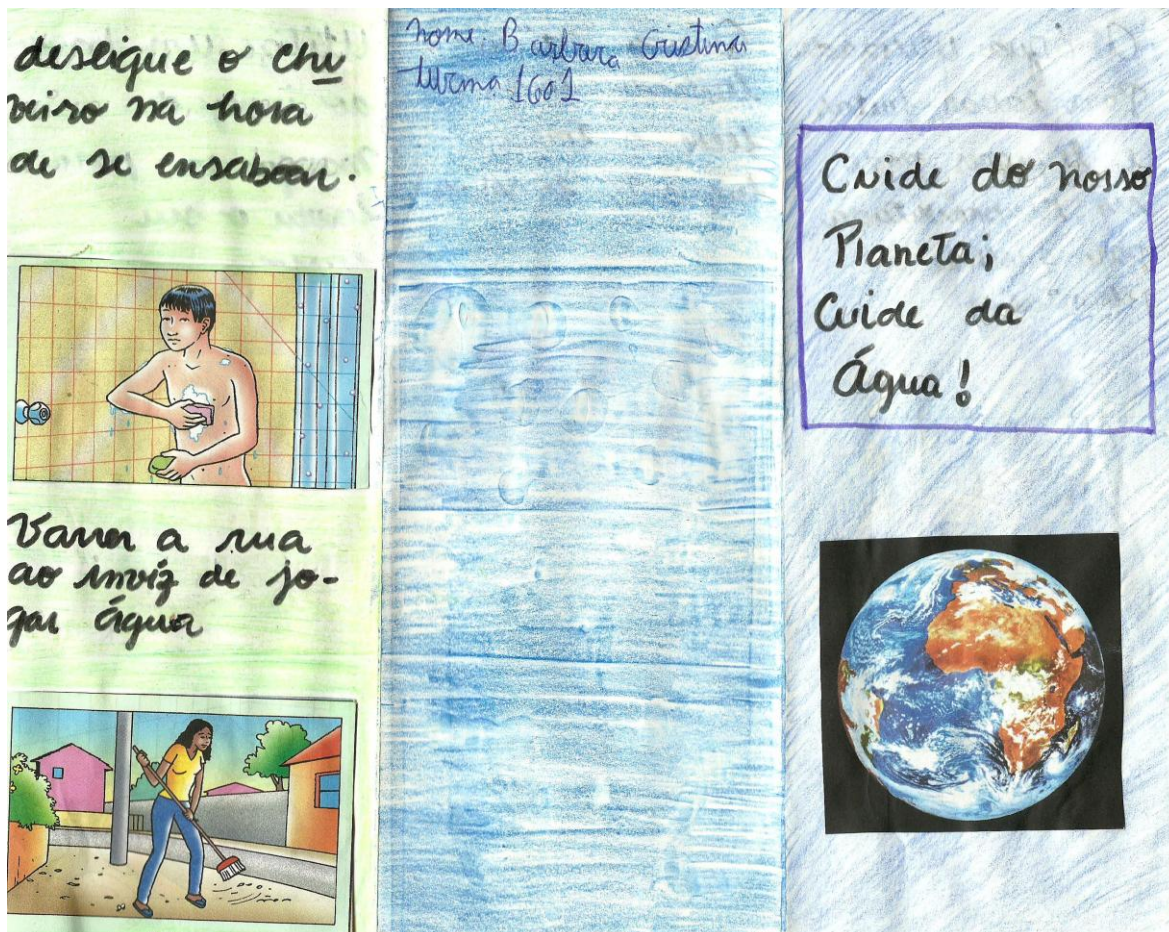 desligue o chu
veiro na hora
de se ensaboar.
Varrer a rua
ao inviz de jo-
gar água
nome: Barbara Cristina
turma 1601
Cuide do nosso
Planeta;
Cuide da
Água!